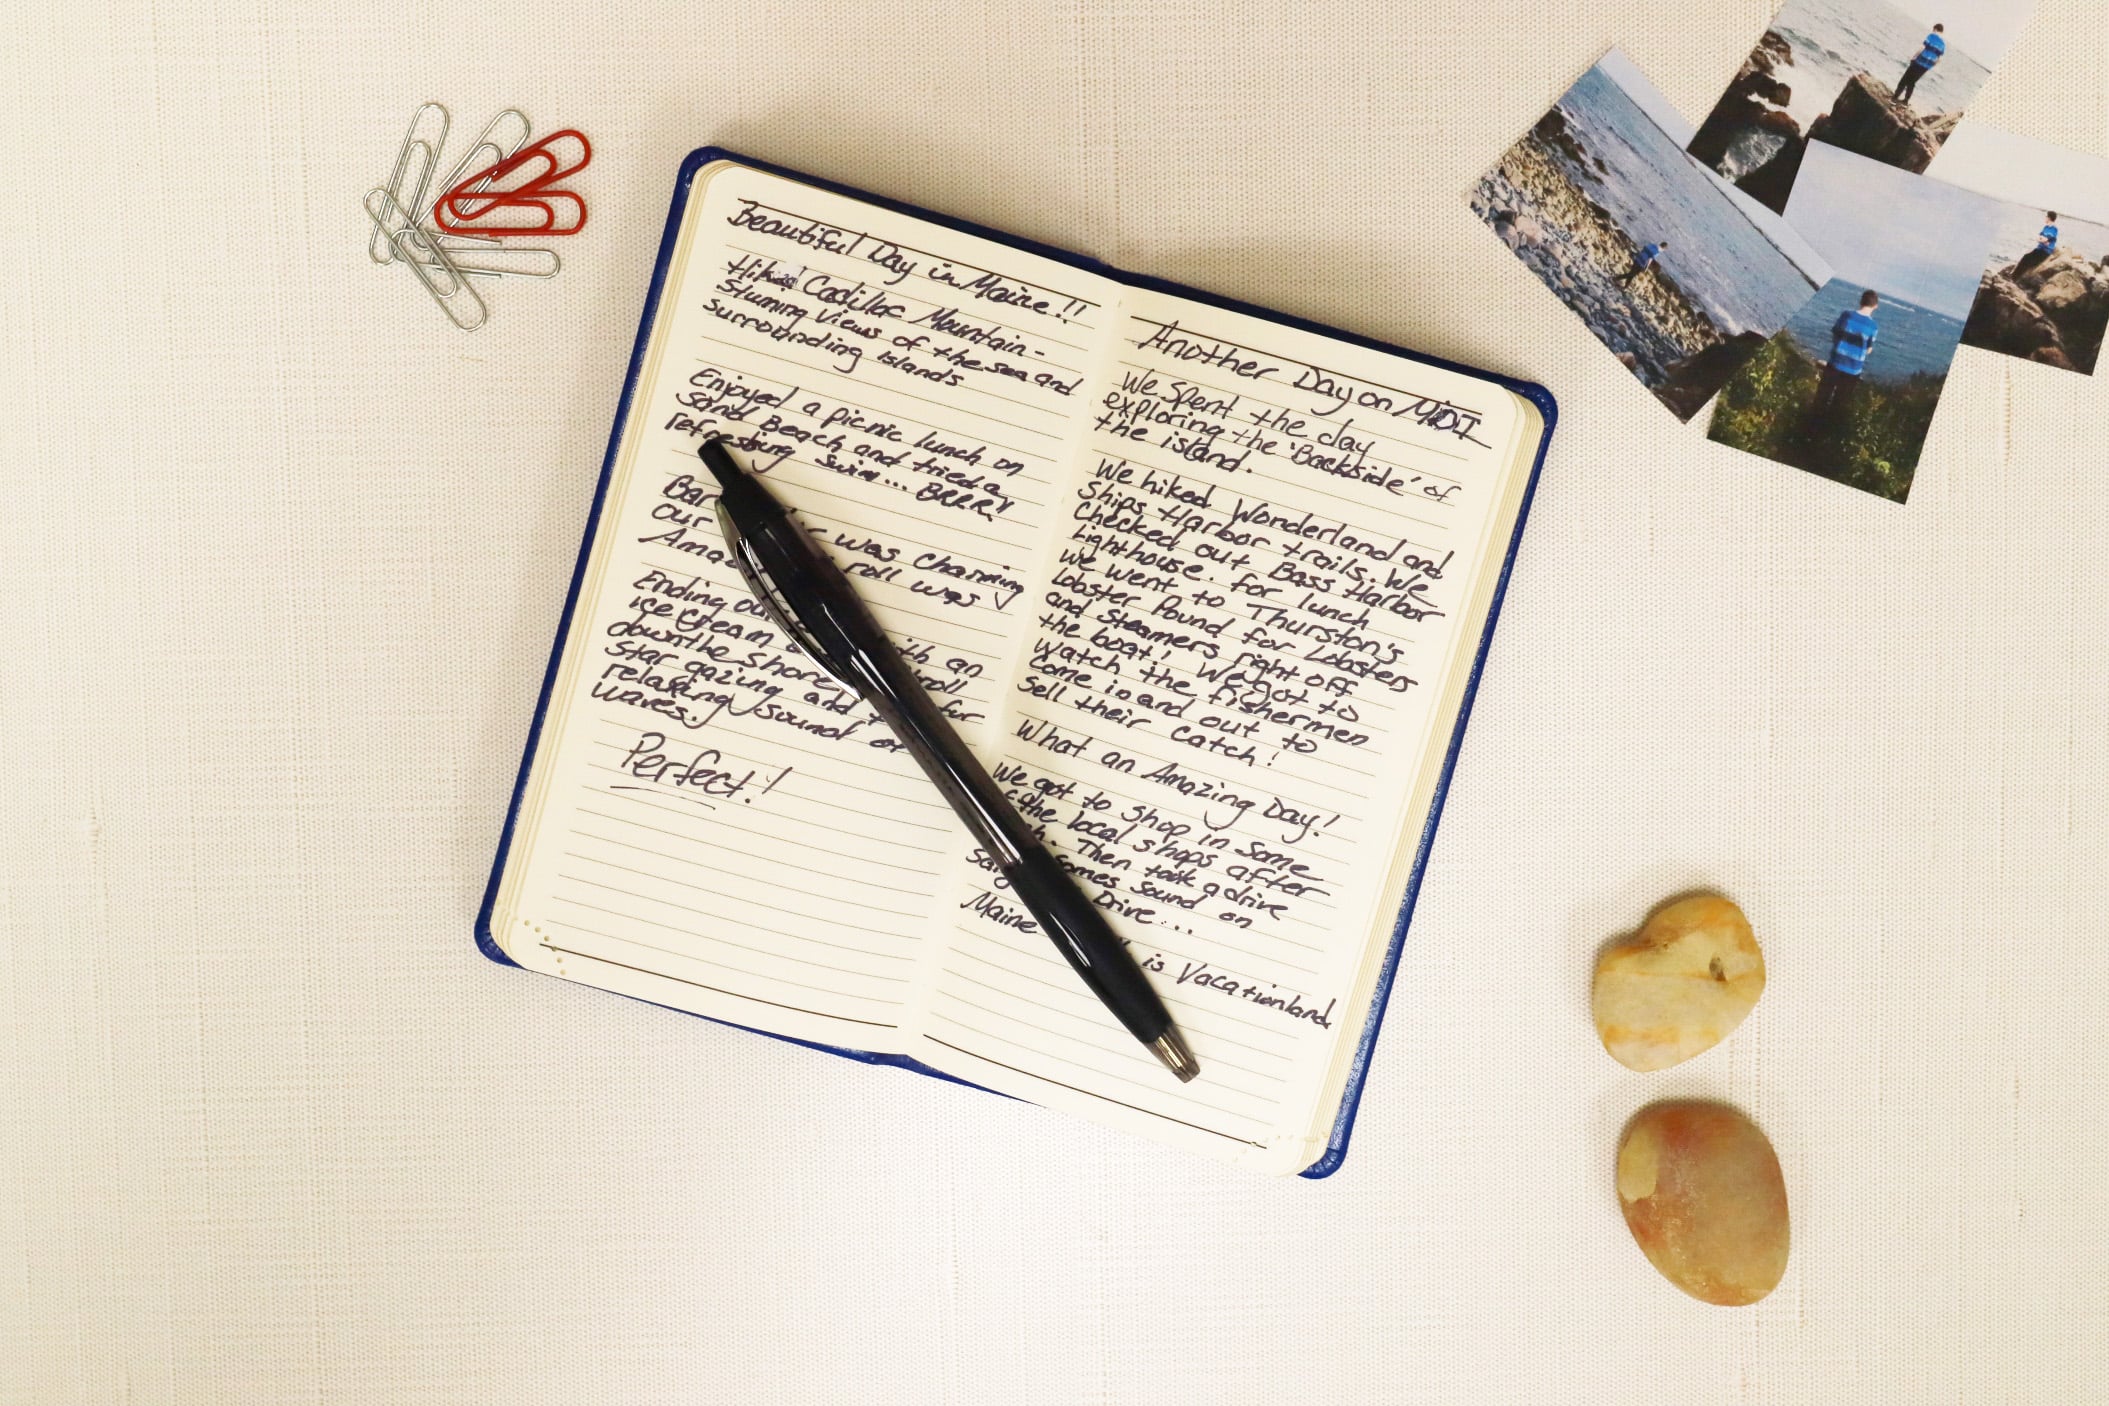 Beautiful Day in Maine!!
Hiked Cadillac Mountain -
Stunning Views of the sea and
surrounding islands
Enjoyed a picnic lunch on
Sand Beach and tried a
refreshing swim... BRRR!
Bar was charming
our roll was
Ama
Ending our with an
ice cream stroll
down the shore for
Star gazing and
relaxing sound of
waves.
Perfect!
Another Day on MDI
We spent the day
exploring the 'Backside' of
the island.
We hiked Wonderland and
Ships Harbor trails. We
Checked out Bass Harbor
Lighthouse. For lunch
we went to Thurston's
Lobster Pound for Lobsters
and Steamers right off
the boat! We got to
watch the fishermen
come in and out to
sell their catch!
What an Amazing Day!
We got to shop in some
of the local shops after
Then took a drive
Somes Sound on
Drive...
Maine is Vacationland